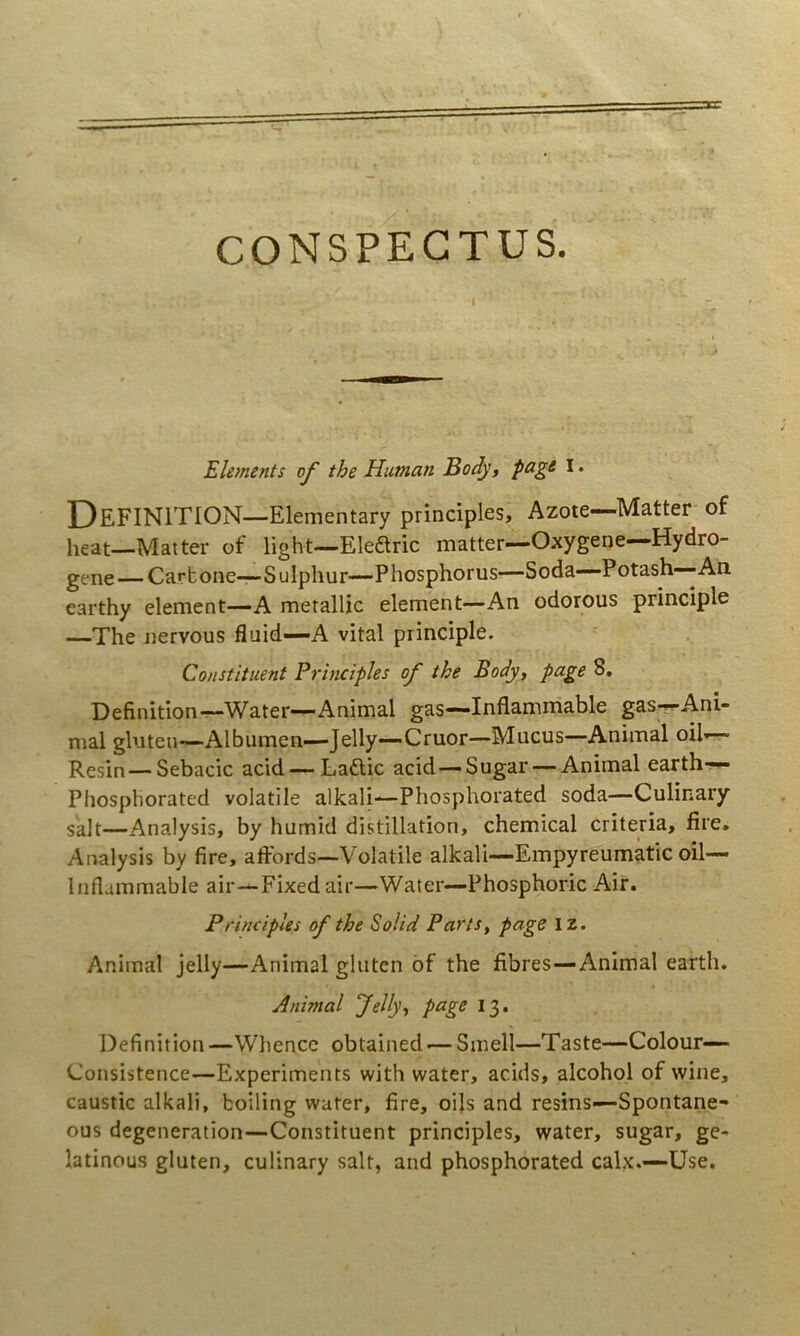 CONSPECTUS.
Elements of the Human Body, page 1.
DEFINITION—Elementary principles, Azote—Matter of
heat—Matter of light—Electric matter—Oxygene—Hydro-
gene—Carbone—Sulphur—Phosphorus—Soda—Potash—An
earthy element—A metallic element—An odorous principle
—The nervous fluid—A vital principle.
Constituent Principles of the Body, page 8.
Definition—Water—Animal gas—Inflammable gas—Ani-
mal gluten—Albumen—Jelly—Cruor—Mucus—Animal oil—
Resin—Sebacic acid—Lactic acid—Sugar—Animal earth—
Phosphorated volatile alkali—Phosphorated soda—Culinary
salt—Analysis, by humid distillation, chemical criteria, fire.
Analysis by fire, affords—Volatile alkali—Empyreumatic oil—
Inflammable air—Fixed air—Water—Phosphoric Air.
Principles of the Solid Parts, page 12.
Animal jelly—Animal gluten of the fibres—Animal earth.
Animal Jelly, page 13.
Definition—Whence obtained—Smell—Taste—Colour—
Consistence—Experiments with water, acids, alcohol of wine,
caustic alkali, boiling water, fire, oils and resins—Spontane-
ous degeneration—Constituent principles, water, sugar, ge-
latinous gluten, culinary salt, and phosphorated calx.—Use.